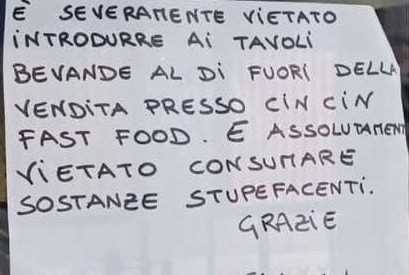 È SEVERAMENTE VIETATO
INTRODURRE AI TAVOLI
BEVANDE AL DI FUORI DELLA
VENDITA PRESSO CIN CIN
FAST FOOD. È ASSOLUTAMENT
VIETATO CONSUMARE
SOSTANZE STUPEFACENTI.
GRAZIE